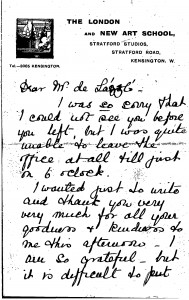 THE LONDON
AND NEW ART SCHOOL,
STRATFORD STUDIOS,
STRATFORD ROAD,
KENSINGTON, W.
TEL.—2085 KENSINGTON.
Dear Mr de László—
I was so sorry that
I could not see you before
you left, but I was quite
unable to leave the
office at all till just
on 6 o'clock.
I wanted just to write
and thank you very
very much for all your
goodness & kindness to
me this afternoon— I
am so grateful— but
it is difficult to put